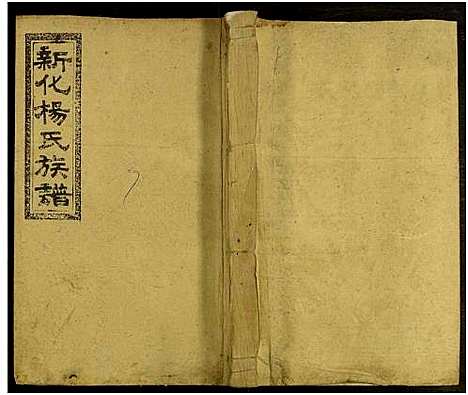 新化楊氏族譜